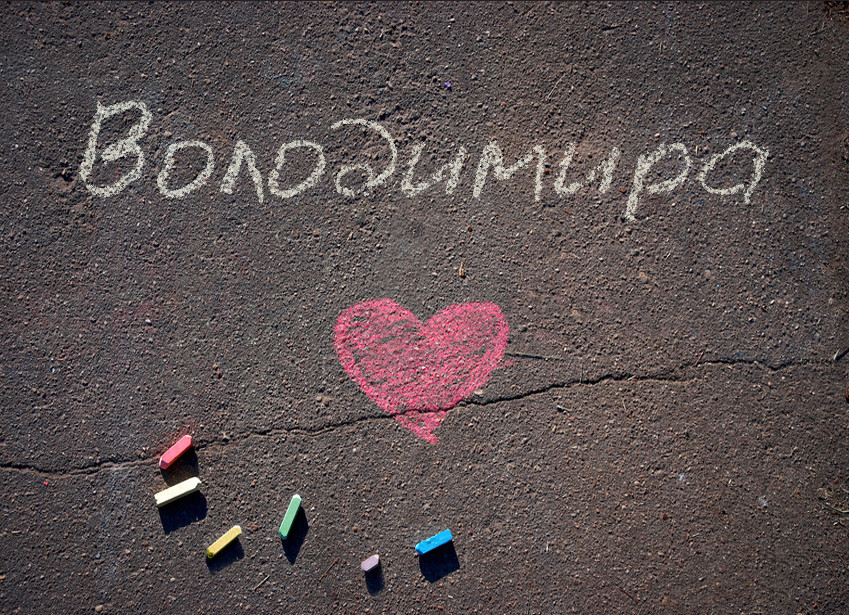 Володимира